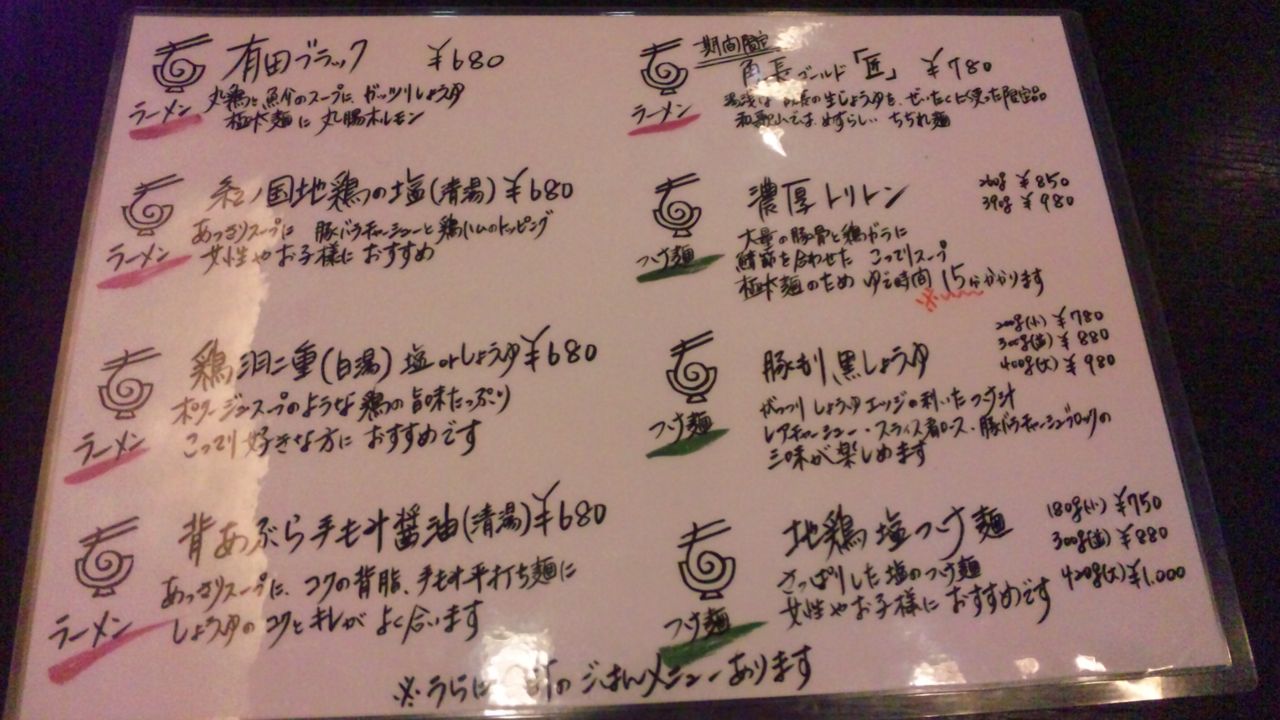 有田ブラック ¥680
丸鶏と魚介のスープに、ガッツリしょうゆ
極太麺に丸腸ホルモン
ラーメン
紀ノ国地鶏の塩(清湯) ¥680
あっさりスープに 豚バラチャーシューと鶏ハムのトッピング
女性やお子様におすすめ
ラーメン
鶏 二重(白湯) 塩orしょうゆ ¥680
ポタージュスープのような鶏の旨味たっぷり
こってり好きな方におすすめです
ラーメン
背あぶら手もみ醤油(清湯) ¥680
あっさりスープに、コクの背脂、手もみ平打ち麺に
しょうゆのコクとキレがよく合います
ラーメン
期間限定
角長ゴールド「匠」 ¥780
湯浅は 角長の生しょうゆを、ぜいたくに使った限定品
和歌山では、めずらしい ちぢれ麺
ラーメン
濃厚トリトン
260g ¥850
390g ¥980
大量の豚骨と鶏ガラに
鯖節を合わせた こってりスープ
極太麺のため ゆで時間 15分かかります
つけ麺
黒しょうゆ
200g(小) ¥780
300g(並) ¥880
400g(大) ¥980
がっつりしょうゆエッジの利いたつけ汁
レアチャーシュー・スライス肩ロース・豚バラチャーシューブロックの
三味が楽しめます
つけ麺
地鶏塩つけ麺
180g(小) ¥750
300g(並) ¥880
420g(大) ¥1,000
さっぱりした塩のつけ麺
女性やお子様におすすめです
つけ麺
※うらに のごはんメニューあります